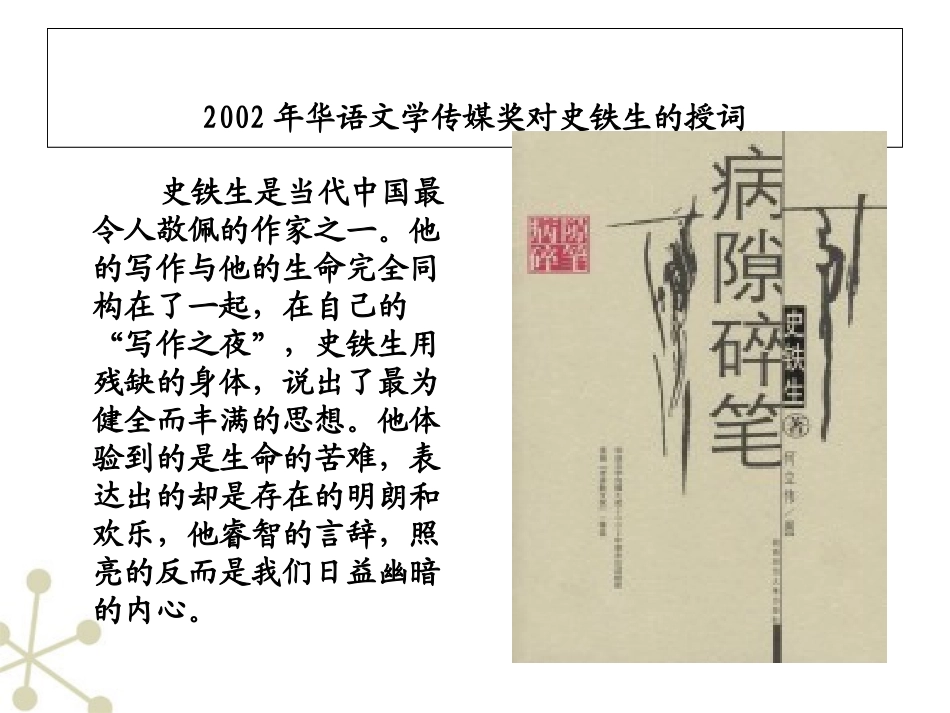 2002 年华语文学传媒奖对史铁生的授词
史铁生是当代中国最
令人敬佩的作家之一。他
的写作与他的生命完全同
构在了一起，在自己的
“写作之夜”，史铁生用
残缺的身体，说出了最为
健全而丰满的思想。他体
验到的是生命的苦难，表
达出的却是存在的明朗和
欢乐，他睿智的言辞，照
亮的反而是我们日益幽暗
的内心。
病隙碎笔
病隙碎笔
史铁生
著
何立伟／画